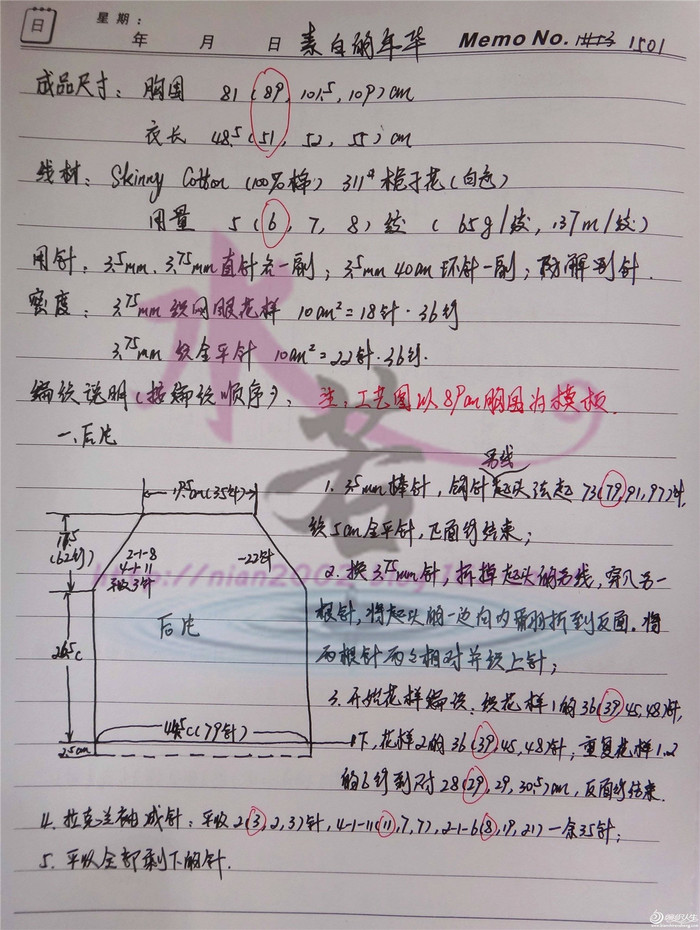 日 星期:
年 月 日 素白的年华 Memo No. 1501
成品尺寸: 胸围 81 (89, 101.5, 109) cm
衣长 48.5 (51, 52, 55) cm
线材: Skinny Cotton (100%棉) 311# 栀子花(白色)
用量 5 (6, 7, 8) 绞 (65g/绞, 137m/绞)
用针: 3.5mm、3.75mm直针各一副; 3.5mm 40cm 环针一副; 防解别针.
密度: 3.75mm 织网眼花样 10cm²=18针·36行
3.75mm 织全平针 10cm²=22针·36行.
编织说明(按编织顺序): 注:工艺图以89cm胸围为模板.
一、后片
另线
1. 3.5mm棒针, 钩针起头法起 73(79, 91, 97)针,
织5cm全平针, 正面行结束;
2. 换3.75mm针, 拆掉起头的另线, 穿入另一
根针, 将起头的一边向内翻折到反面. 将
两根针两之相对并织上针;
3. 开始花样编织: 织花样1的36(39, 45, 48)针,
1下, 花样2的36(39, 45, 48)针, 重复花样1.2
的6行到对28(29, 29, 30.5)cm, 反面行结束.
19.5cm(35针)
17.5
(62行)
2-1-8
4-1-11
平收3针
-22针
后片
26.5c
44.5c(79针)
2.5cm
4. 拉克兰袖减针: 平收2(3, 2, 3)针, 4-1-11(11, 7, 7), 2-1-6(8, 19, 21) 一余35针;
5. 平收全部剩下的针.
水若